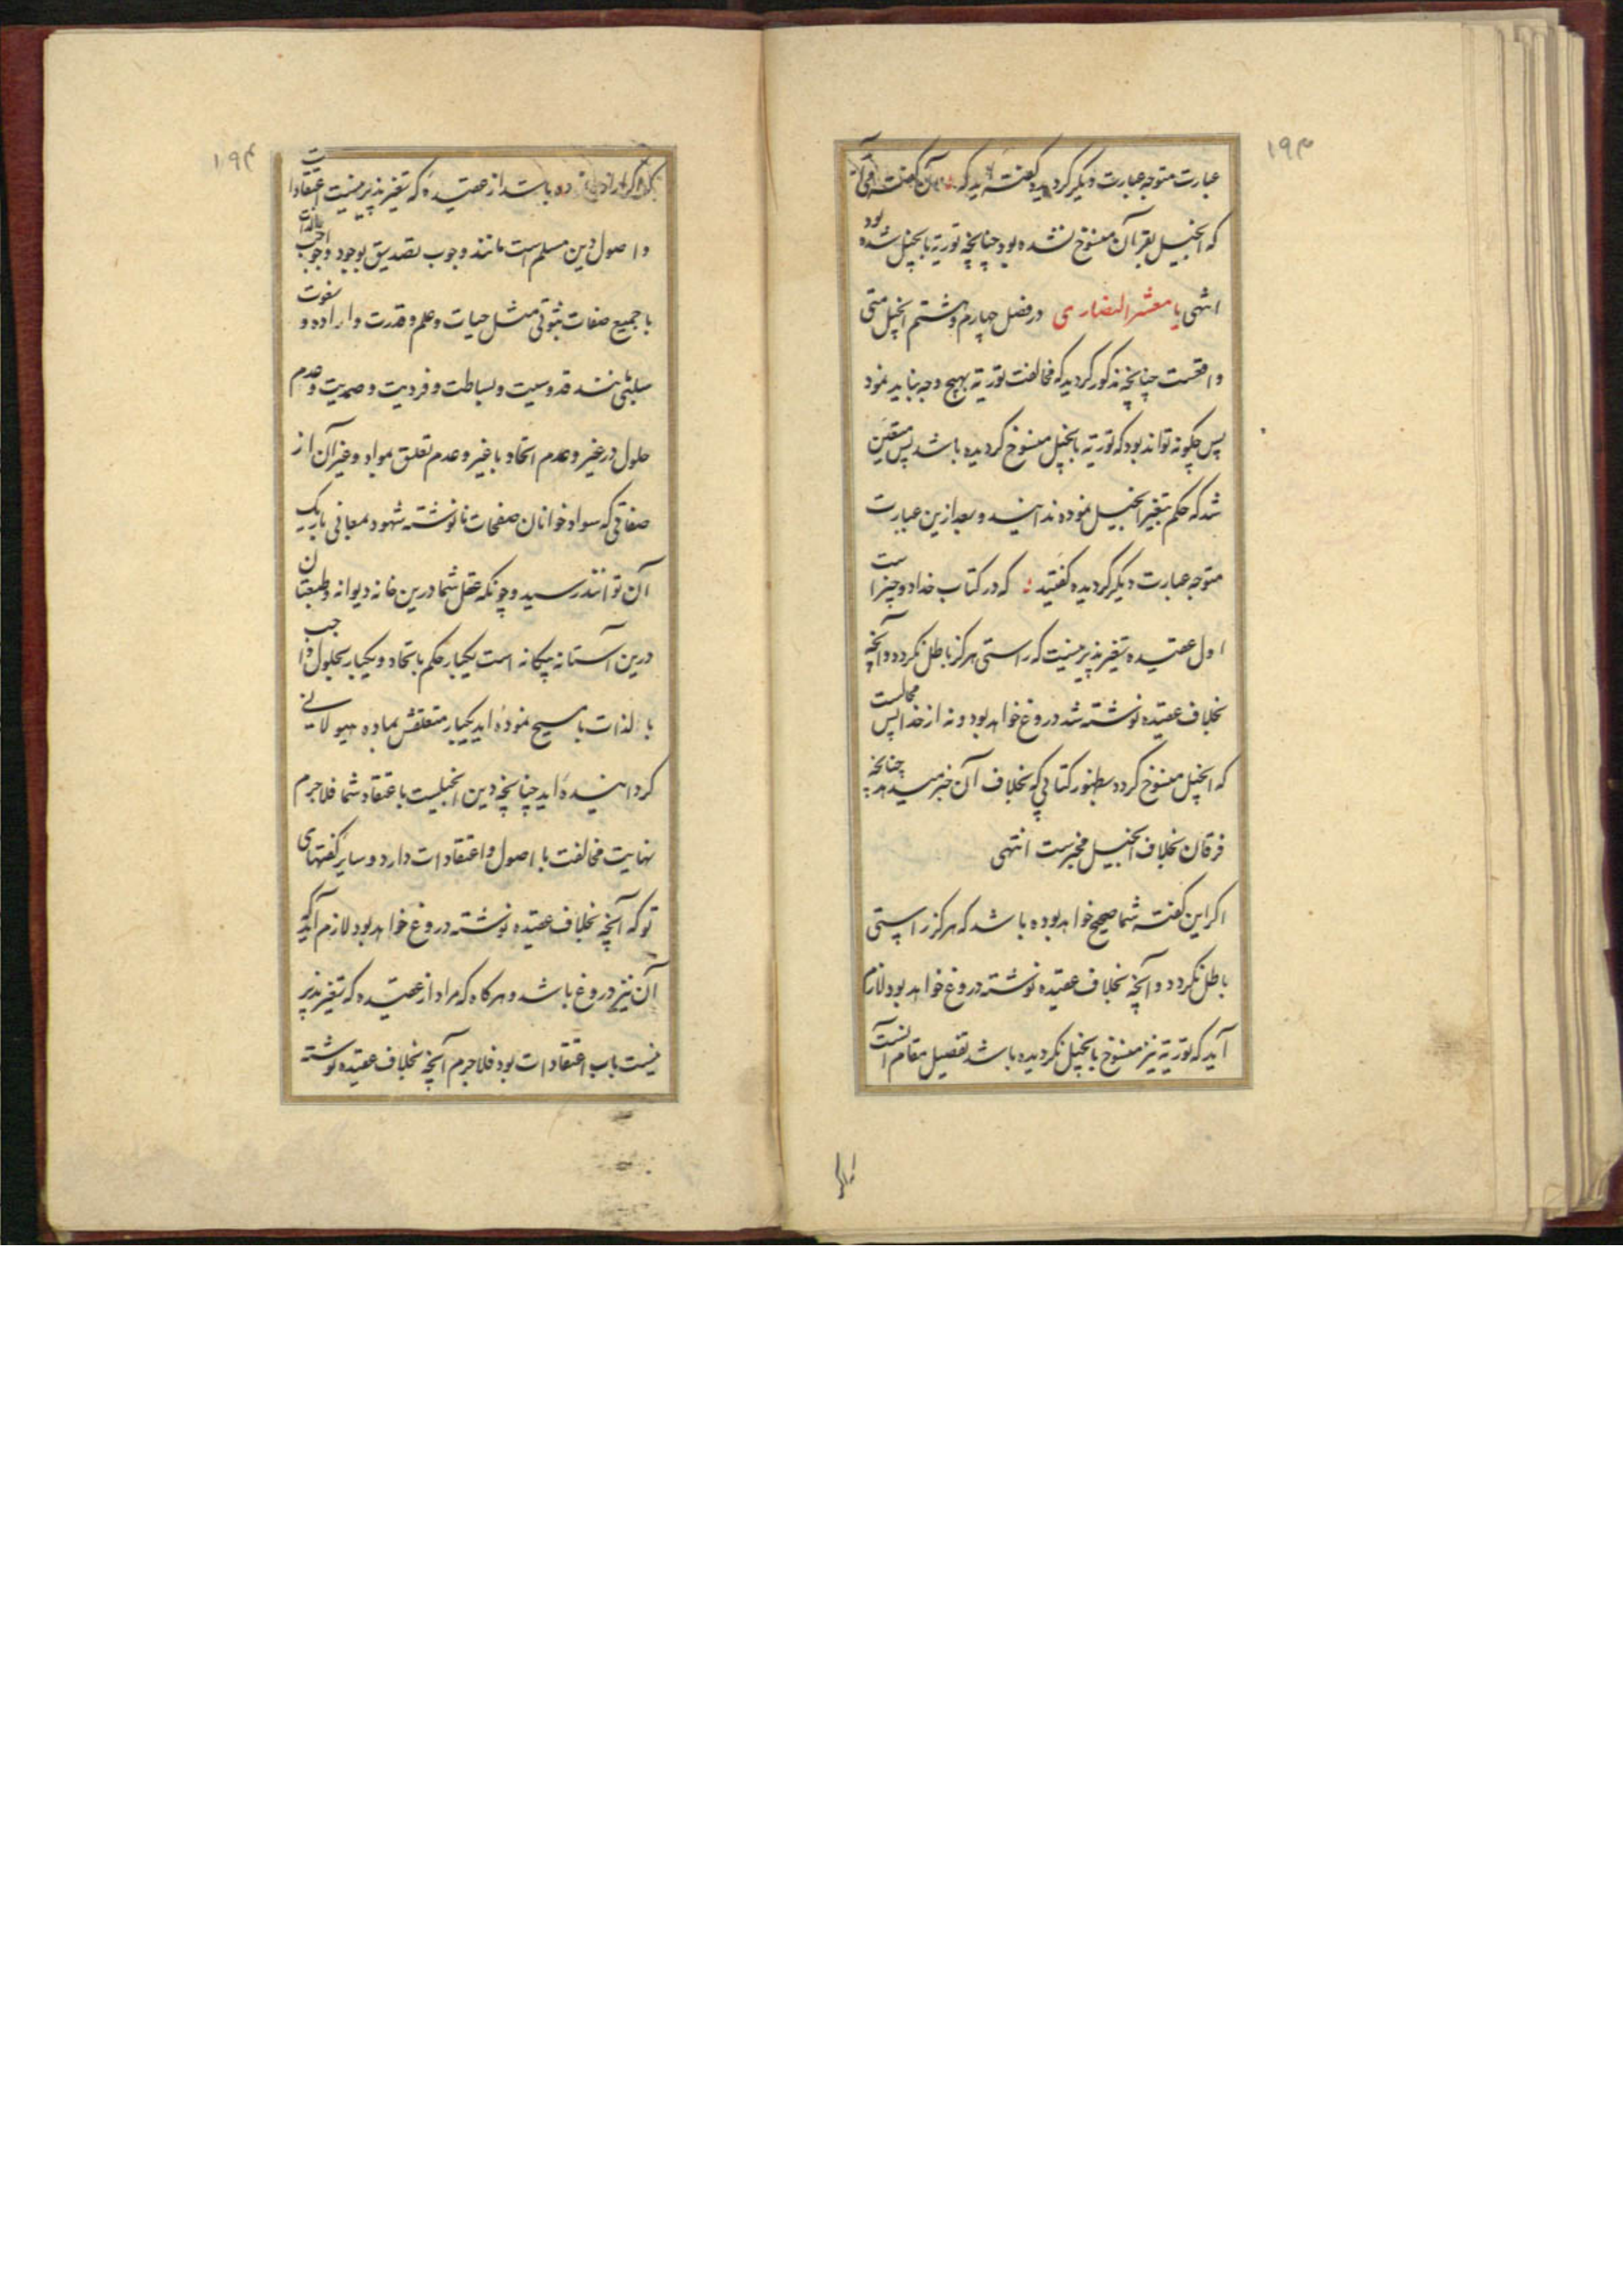 ۱۹۳
عبارت متوجه عبارت دیگر کردیده گفته اید که آن گفت
که انجیل بقرآن منسوخ نشده بود چنانچه توریة بانجیل شده بود
انتهی یا معشر النصاری در فصل چهارم و هشتم انجیل متی
واقعست چنانچه مذکور کردید که مخالفت توریة بهیچ وجه نباید نمود
پس چگونه تواند بود که توریة بانجیل منسوخ کردیده باشد پس متعین
شد که حکم بتغیر انجیل نموده اند و بعد ازین عبارت
متوجه عبارت دیگر کردیده گفتید که در کتاب خدا دو چیز است
اول عقیده تغیر پذیر نیست که راستی هرگز باطل نکردد و آنچه
بخلاف عقیده نوشته شد دروغ خواهد بود و نه از خدا پس محالست
که انجیل منسوخ کردد بظهور کتابی که بخلاف آن خبر میدهد چنانچه
فرقان بخلاف انجیل مخبرست انتهی
اگر این گفته شما صحیح خواهد بوده باشد که هرگز راستی
باطل نکردد و آنچه بخلاف عقیده نوشته دروغ خواهد بود لازم
آید که توریة نیز منسوخ بانجیل نکردیده باشد تفصیل مقام آنست
۱۹۴
باشد از عقیده که تغیر پذیر نیست اعتقادات
و اصول دین مسلم است مانند وجوب تصدیق بوجود واجب بالذات
با جمیع صفات ثبوتی مثل حیات و علم و قدرت و اراده و
سلبی مانند قدوسیت و بساطت و فردیت و صمدیت و عدم
حلول در غیر و عدم اتحاد با غیر و عدم تعلق بمواد و غیر آن از
صفاتی که سواد خوانان صفحات نانوشته شهود بمعانی باریک
آن توانند رسید و چونکه عقل شما درین خانه دیوانه و طبعتان
درین آستانه بیگانه است یکبار حکم باتحاد و یکبار بحلول واجب
بالذات با مسیح نموده اید یکبار متعلقش بماده هیولانی
کردانیده اید چنانچه دین انجیلیست باعتقاد شما فلاجرم
نهایت مخالفت با اصول و اعتقادات دارد و سایر گفتهای
تو که آنچه بخلاف عقیده نوشته دروغ خواهد بود لازم آید که
آن نیز دروغ باشد و هرگاه که مراد از عقیده که تغیر پذیر
نیست باب اعتقادات بود فلاجرم آنچه بخلاف عقیده نوشته